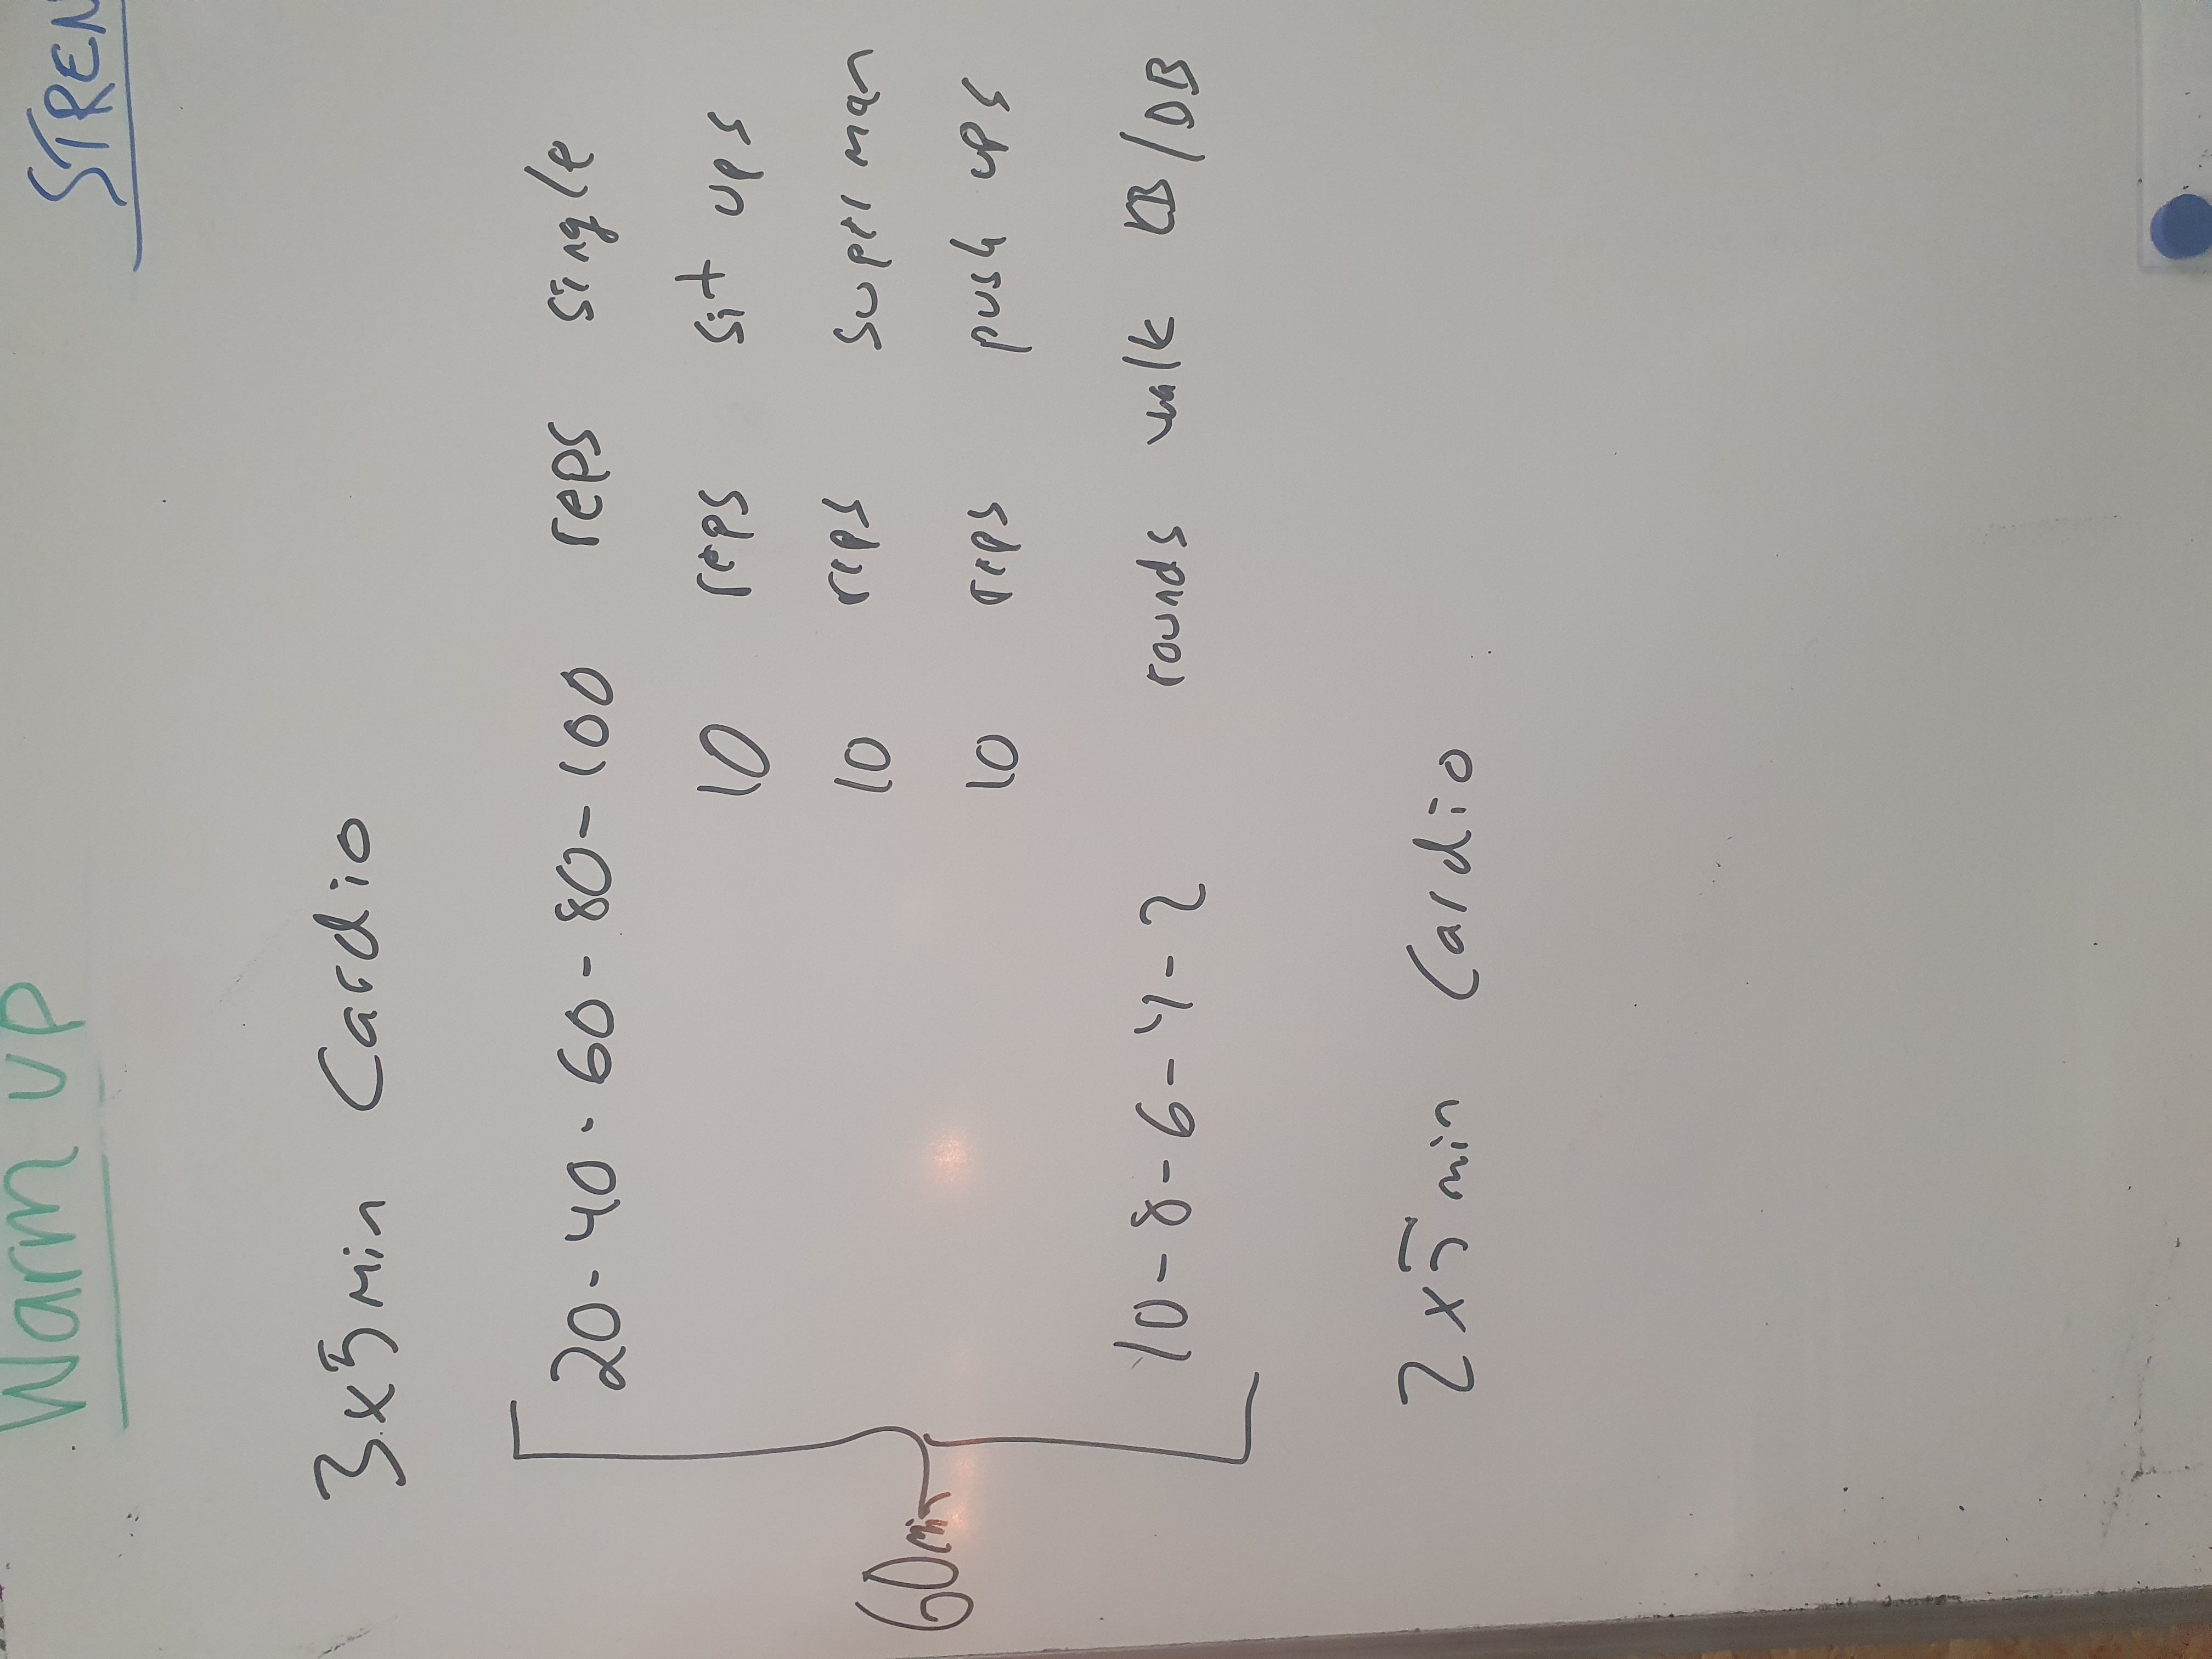 Warm up
STREN
3x5 min Cardio
20-40-60-80-100 reps single
10 reps sit ups
10 reps superman
10 reps push ups
10-8-6-4-2 rounds walk KB/DB
60min
2x5 min Cardio